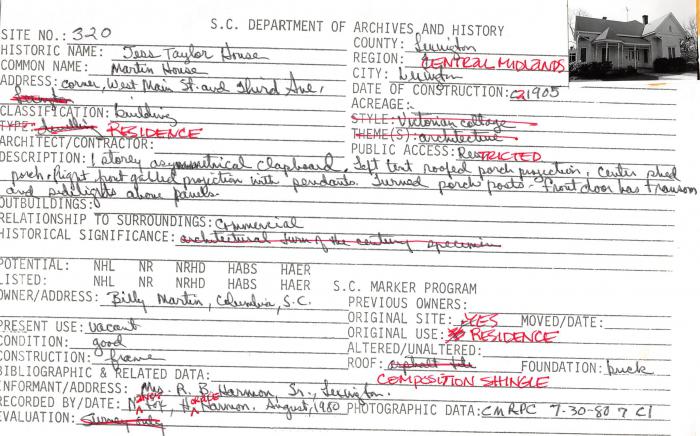 S.C. DEPARTMENT OF ARCHIVES AND HISTORY
SITE NO.: 320
COUNTY: Lexington
HISTORIC NAME: Jess Taylor House
REGION: CENTRAL MIDLANDS
COMMON NAME: Martin House
CITY: Lexington
ADDRESS: corner, West Main St. and Third Ave,
DATE OF CONSTRUCTION: c 1905
Lexington
ACREAGE:
CLASSIFICATION: building
STYLE: Victorian cottage
TYPE: RESIDENCE
THEME(S): architecture
ARCHITECT/CONTRACTOR:
PUBLIC ACCESS: RESTRICTED
DESCRIPTION: 1 storey asymmetrical clapboard. Left tent roofed porch projection, center shed
porch, right front gabled projection with pendants. Turned porch posts - Front door has transom
and sidelights above panels.
OUTBUILDINGS:
RELATIONSHIP TO SURROUNDINGS: Commercial
HISTORICAL SIGNIFICANCE: architectural turn of the century specimen
POTENTIAL: NHL NR NRHD HABS HAER
LISTED: NHL NR NRHD HABS HAER
S.C. MARKER PROGRAM
OWNER/ADDRESS: Billy Martin, Columbia, S.C.
PREVIOUS OWNERS:
ORIGINAL SITE: YES MOVED/DATE:
PRESENT USE: vacant
ORIGINAL USE: RESIDENCE
CONDITION: good
ALTERED/UNALTERED:
CONSTRUCTION: frame
ROOF: asphalt FOUNDATION: brick
COMPOSITION SHINGLE
BIBLIOGRAPHIC & RELATED DATA:
INFORMANT/ADDRESS: Mrs. R. B. Harmon, Sr., Lexington.
RECORDED BY/DATE: Nancy Fox, Horace Harmon. August, 1980 PHOTOGRAPHIC DATA: CMRPC 7-30-80 7 C1
EVALUATION: Survey only